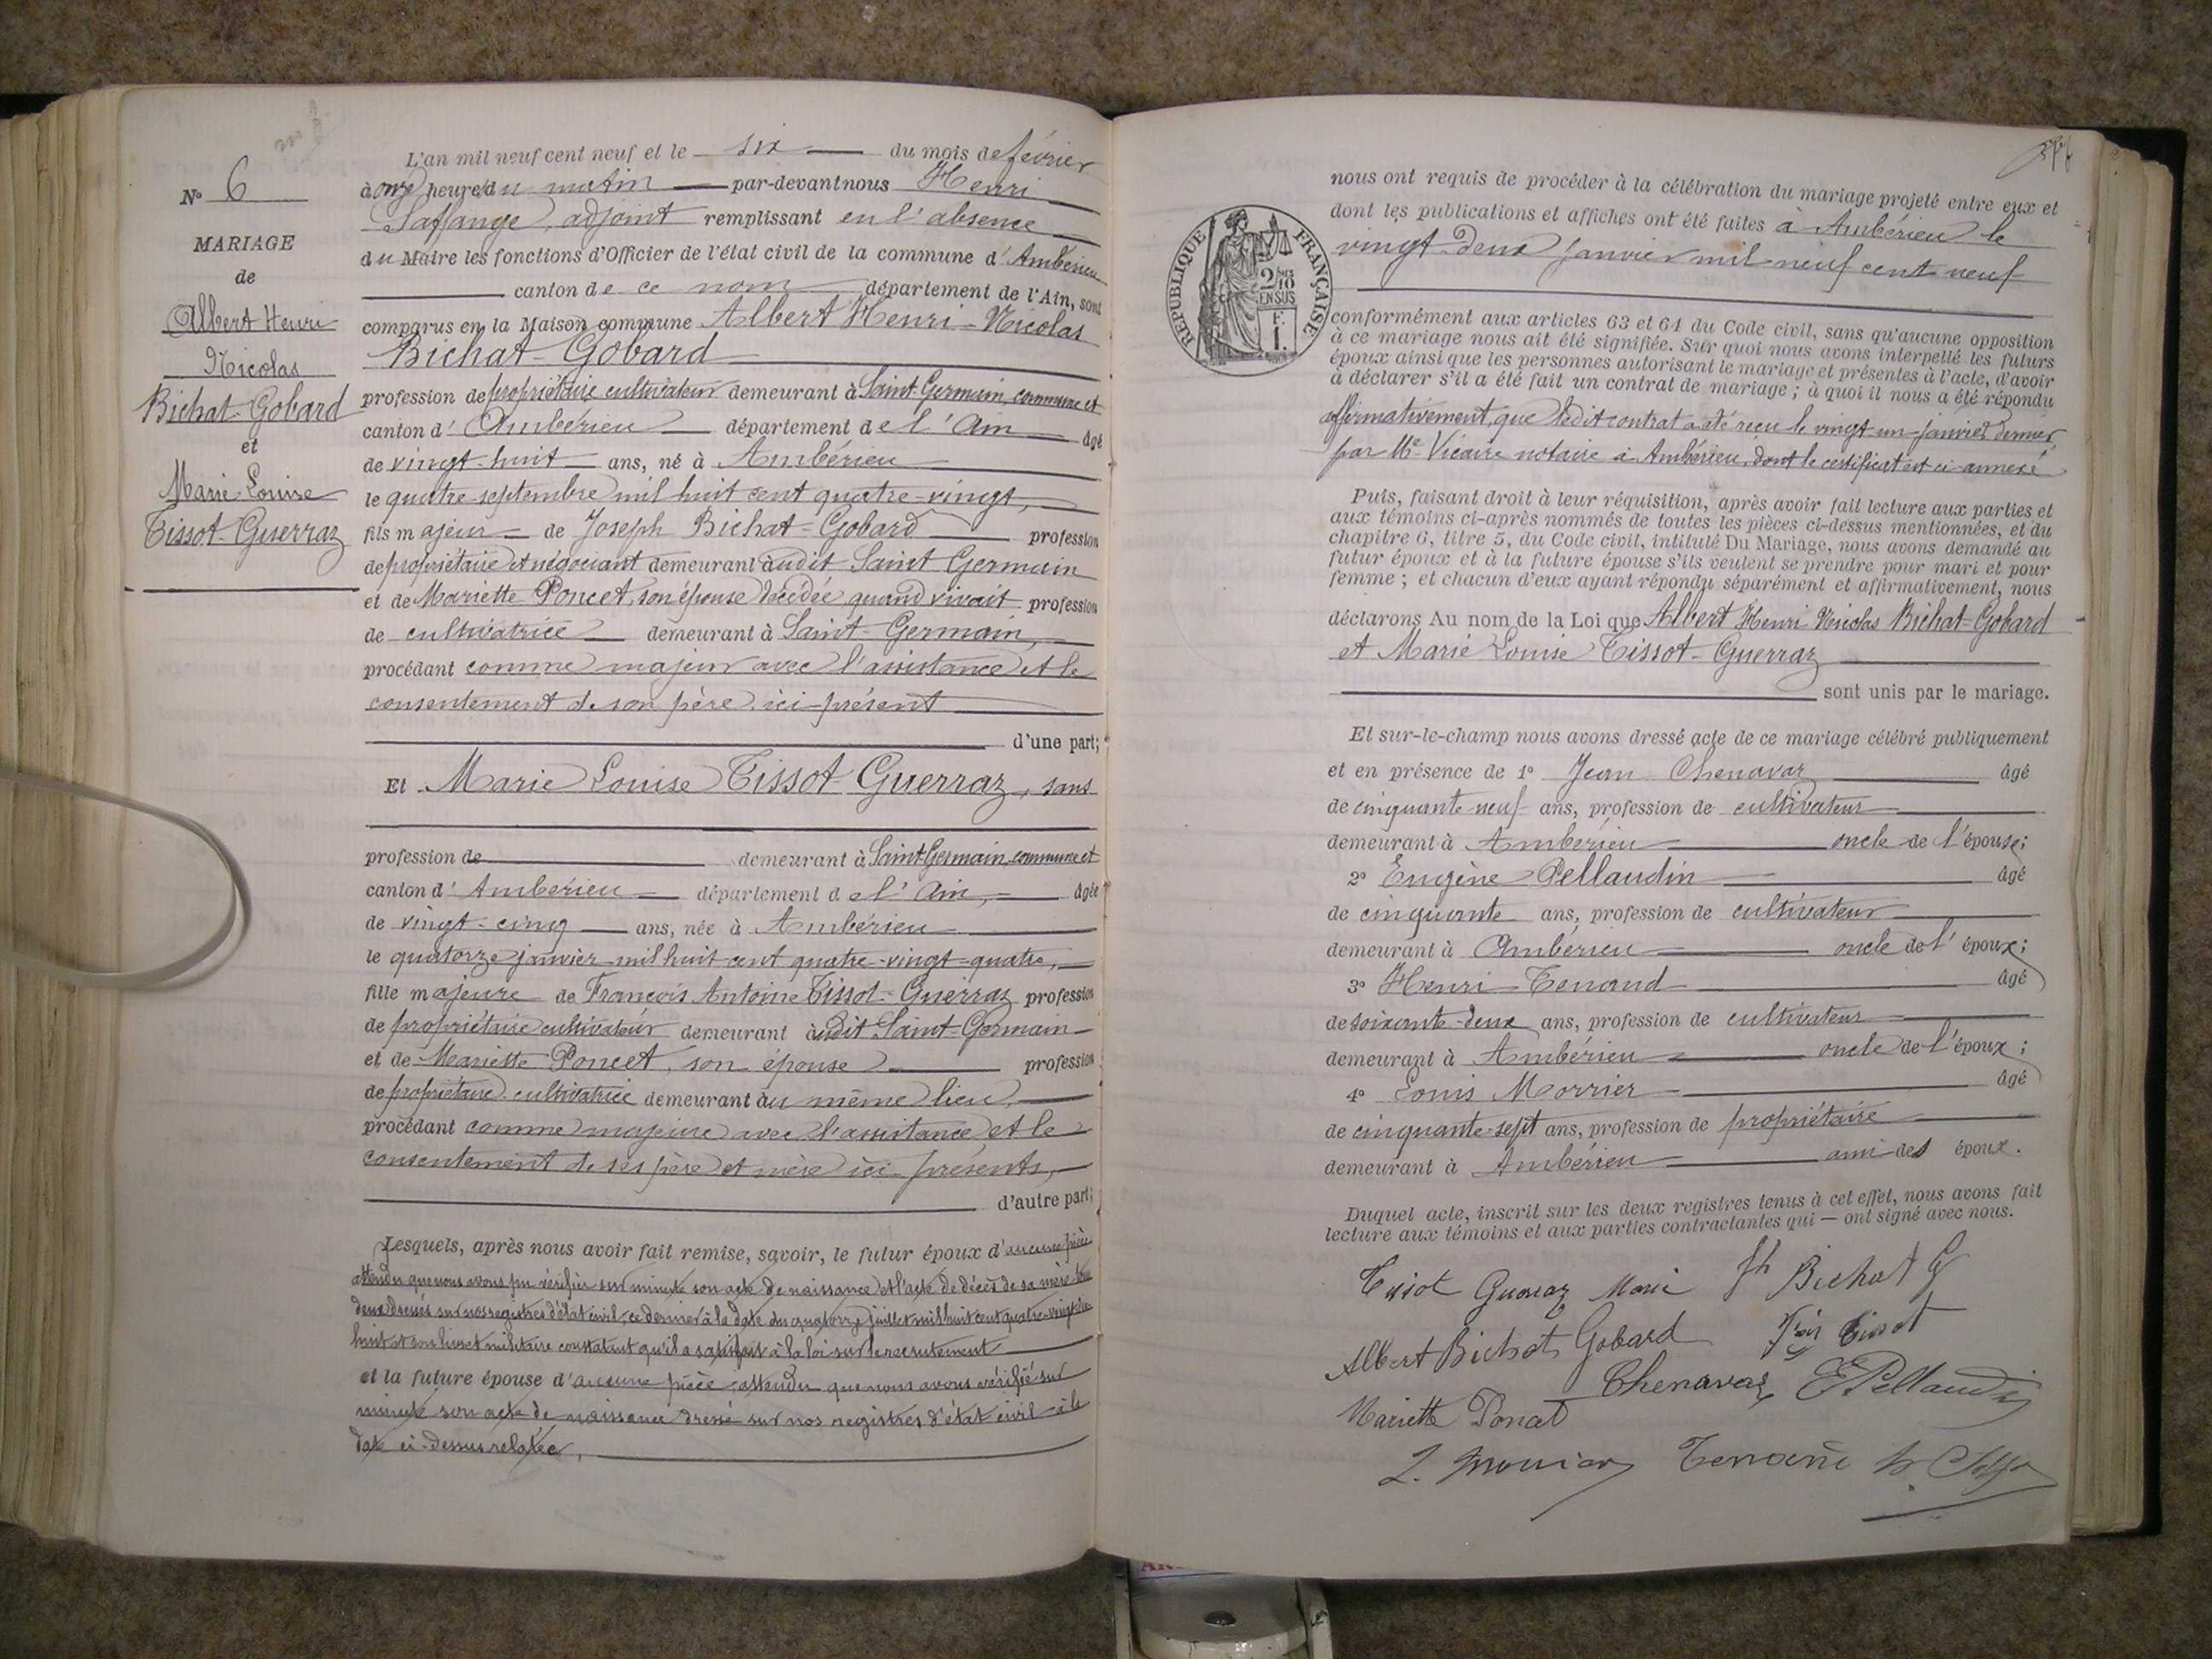 N° 6
MARIAGE
de
Albert Henri
Nicolas
Bichat-Gobard
et
Marie Louise
Tissot-Guerraz
L'an mil neuf cent neuf et le six du mois de février
à onze heures du matin par-devant nous Henri
adjoint remplissant en l'absence
du Maire les fonctions d'Officier de l'état civil de la commune d'Ambérieu
canton de ce nom département de l'Ain, sont
comparus en la Maison commune Albert Henri-Nicolas
Bichat-Gobard
profession de propriétaire cultivateur demeurant à Saint Germain, commune et
canton d'Ambérieu département de l'Ain âgé
de vingt-huit ans, né à Ambérieu
le quatre septembre mil huit cent quatre-vingt,
fils majeur de Joseph Bichat-Gobard profession
de propriétaire et négociant demeurant audit Saint Germain
et de Mariette Poncet, son épouse décédée quand vivait profession
de cultivatrice demeurant à Saint-Germain,
procédant comme majeur avec l'assistance et le
consentement de son père ici présent
d'une part;
Et Marie Louise Tissot-Guerraz, sans
profession de demeurant à Saint Germain, commune et
canton d'Ambérieu département de l'Ain, âgée
de vingt-cinq ans, née à Ambérieu
le quatorze janvier mil huit cent quatre-vingt-quatre,
fille majeure de François Antoine Tissot-Guerraz profession
de propriétaire cultivateur demeurant audit Saint-Germain
et de Mariette Poncet, son épouse profession
de propriétaire cultivatrice demeurant au même lieu,
procédant comme majeure avec l'assistance et le
consentement de ses père et mère ici présents,
d'autre part;
Lesquels, après nous avoir fait remise, savoir, le futur époux d'aucune pièce
attendu que nous avons pu vérifier sur minute son acte de naissance et l'acte de décès de sa mère tous
deux dressés sur nos registres d'état civil, ce dernier à la date du quatorze juillet mil huit cent quatre-vingt-dix
huit et son livret militaire constatant qu'il a satisfait à la loi sur le recrutement
et la future épouse d'aucune pièce attendu que nous avons vérifié sur
minute son acte de naissance dressé sur nos registres d'état civil à la
date ci-dessus relatée,
nous ont requis de procéder à la célébration du mariage projeté entre eux et
dont les publications et affiches ont été faites à Ambérieu le
vingt-deux janvier mil neuf cent neuf
RÉPUBLIQUE FRANÇAISE
2/10
EN SUS
F.
1.
conformément aux articles 63 et 64 du Code civil, sans qu'aucune opposition
à ce mariage nous ait été signifiée. Sur quoi nous avons interpellé les futurs
époux ainsi que les personnes autorisant le mariage et présentes à l'acte, d'avoir
à déclarer s'il a été fait un contrat de mariage ; à quoi il nous a été répondu
affirmativement, que ledit contrat a été reçu le vingt-un janvier dernier,
par Me Vicaire notaire à Ambérieu, dont le certificat est ci-annexé
Puis, faisant droit à leur réquisition, après avoir fait lecture aux parties et
aux témoins ci-après nommés de toutes les pièces ci-dessus mentionnées, et du
chapitre 6, titre 5, du Code civil, intitulé Du Mariage, nous avons demandé au
futur époux et à la future épouse s'ils veulent se prendre pour mari et pour
femme ; et chacun d'eux ayant répondu séparément et affirmativement, nous
déclarons Au nom de la Loi que Albert Henri Nicolas Bichat-Gobard
et Marie Louise Tissot-Guerraz
sont unis par le mariage.
Et sur-le-champ nous avons dressé acte de ce mariage célébré publiquement
et en présence de 1° Jean Chenavaz âgé
de cinquante-neuf ans, profession de cultivateur
demeurant à Ambérieu oncle de l'épouse;
2° Eugène Pellaudin âgé
de cinquante ans, profession de cultivateur
demeurant à Ambérieu oncle de l'époux;
3° Henri Tenand âgé
de soixante-deux ans, profession de cultivateur
demeurant à Ambérieu oncle de l'époux;
4° Louis Morrier âgé
de cinquante-sept ans, profession de propriétaire
demeurant à Ambérieu ami des époux.
Duquel acte, inscrit sur les deux registres tenus à cet effet, nous avons fait
lecture aux témoins et aux parties contractantes qui — ont signé avec nous.
Tissot Guerraz Marie Jh Bichat G
Albert Bichat Gobard Fçois Tissot
Chenavaz E Pellaudin
Mariette Poncet
L. Morrier Tenand